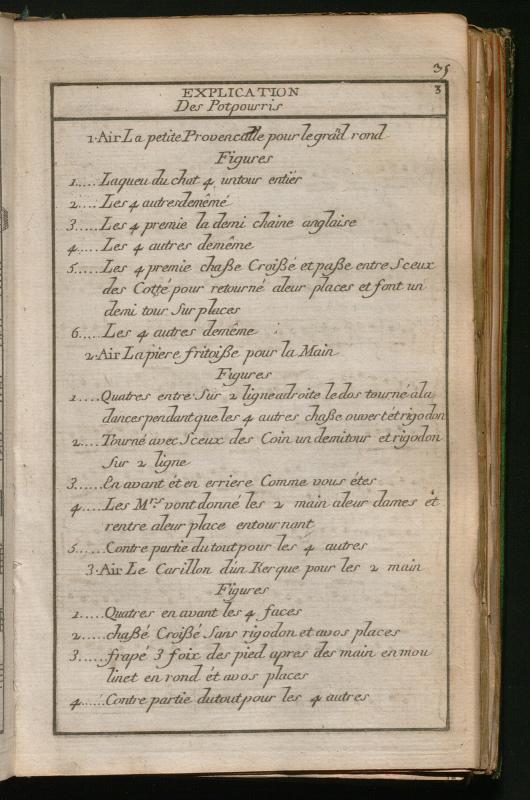 35
EXPLICATION 3
Des Potpourris
1. Air La petite Provencalle pour le grãd rond
Figures
1..... Laqueu du chat 4 untour entiér
2..... Les 4 autres demêmé
3..... Les 4 premie la demi chaine anglaise
4..... Les 4 autres demême
5..... Les 4 premie chaße Croißé et paße entre Sceux
des Cotté pour retourné aleur places et font un
demi tour Sur places
6..... Les 4 autres demême
2. Air La piere fritoiße pour la Main
Figures
1.... Quatres entre Sur 2 ligne adroite le dos tourné ala
dances pendant que les 4 autres chaße ouvert ét rigodon
2.... Tourné avec Sceux des Coin un demitour et rigodon
Sur 2 ligne
3...... En avant ét en erriere Comme vous étes
4..... Les Mrs vont donné les 2 main aleur dames ét
rentre aleur place entournant
5...... Contre partie du tout pour les 4 autres
3. Air Le Carillon d'un Kerque pour les 2 main
Figures
1..... Quatres en avant les 4 faces
2..... chaßé Croißé Sans rigodon et avos places
3...... frapé 3 foix des pied apres des main en mou
linet en rond ét avos places
4...... Contre partie dutout pour les 4 autres